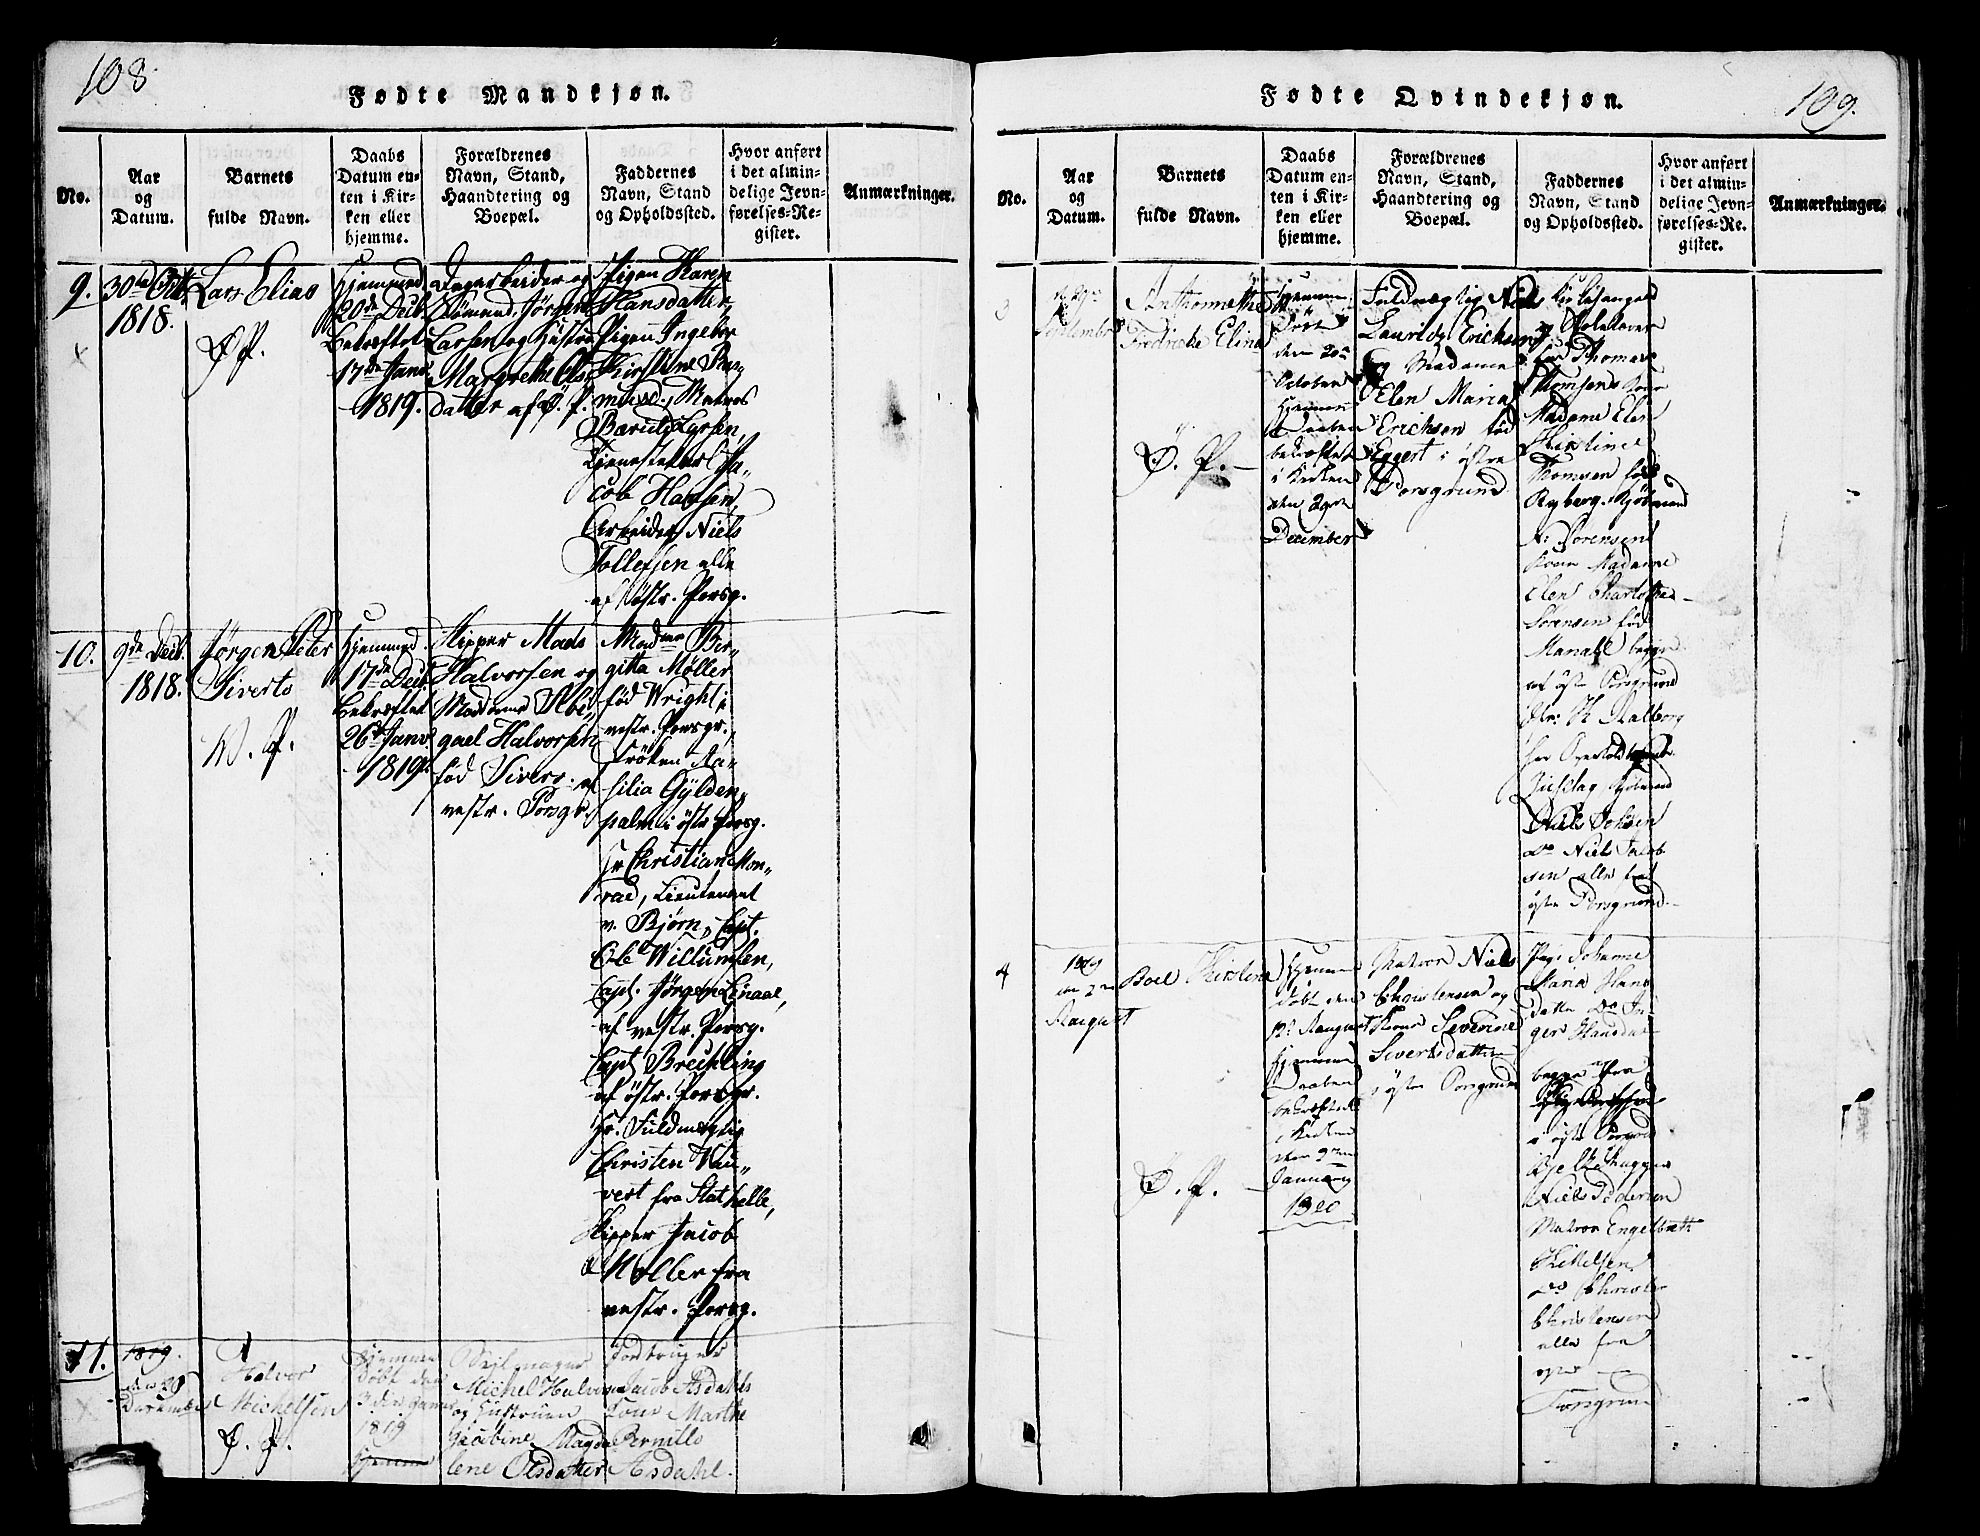 108.
Fødte Mandkjøn.
No.
Aar
og
Datum.
Barnets
fulde Navn.
Daabs
Datum en-
ten i Kir-
ken eller
hjemme.
Forældrenes
Navn, Stand,
Haandtering og
Boepæl.
Faddernes
Navn, Stand
og Opholdssted.
Hvor anført
i det almin-
delige Jevn-
førelses-Re-
gister.
Anmærkninger.
9.
30te Octb.
1818.
Lars Elias
Ø. P.
Hjemmed.
20de Decb.
Bekræftet
17de Janv.
1819.
Dagarbeider og
Jørgen
Larsen og Hustru
Margrethe Ols-
datter af Ø. P.
Pigen Karen
Hansdatter,
Pigen Ingebor
Kirstine
Matros
Larsen,
Tjenestekarl Ja-
cob Hansen
Arbeider Niels
Tollefsen alle
af østr. Porsg.
10.
9de Decb.
1818.
Jørgen Peter
Siverts
W. P.
Hjemmed.
17de Decb.
Bekræftet
26de Janv.
1819.
Skipper Mads
Halvorsen og
Madame Abi-
gael Halvorsen
fød Sivers af
vestr. Porsgr.
Madme Bir-
gitta Møller
fød Wright i
vestr. Porsgr.,
Frøken
Gylden-
palm i østr. Porsg.
Hr Christian Mon-
rad, Lieutenant
v. Bjørn, Capt.
Ole Willumsen,
Capt. Jørgen Linaae,
af vestr. Porsg.
Capt. Brechling
af østr. Porsgr.
Hr. Fuldmægtig
Christen
fra Stathelle,
Skipper Jacob
Møller fra
vestr. Porsg.
11.
1819.
den 20
December
Halvor
Michelsen
Ø. P.
Hjemme
døbt den
3die Januar
1819
Hjemme
Seilmager
Michel Halvorsen
og Hustruen
Jacobine Magda
lene Olsdatter
Jacob Asdahls
Kone Marthe
Pernille
Asdahl.
109.
Fødte Qvindekjøn.
No.
Aar
og
Datum.
Barnets
fulde Navn.
Daabs
Datum en-
ten i Kir-
ken eller
hjemme.
Forældrenes
Navn, Stand,
Haandtering og
Boepæl.
Faddernes
Navn, Stand
og Opholdssted.
Hvor anført
i det almin-
delige Jevn-
førelses-Re-
gister.
Anmærkninger.
3
d. 29de
September
Anthonnethe
Fredricke Elina
Ø. P.
Hjemme
døbt
den 20de
October
Hjemme
Daaben
bekræftet
i Kirken
den 29de
December
Fuldmægtig Niels
Lauritz Erichsen
og Madame
Elen Maria
Erichsen fød
Eggert i østre
Porsgrund
og Skolelærer
Thomas
Thomsens Kone
Madame Elen
Kirstine
Thomsen fød
Ryberg, Kjøbmand
A: Sørensens
Kone Madame
Elen Charlotha
Sørensen fød
begge
af øste Porsgrund
Aalborg
Kjøbmand
Niels Johsen
Do Niels Jacob
sen alle fra
øste Porsgrund
4
1819
den 2den
August
Boel Kirstine
Ø. P.
Hjemme
døbt den
12te August
Hjemme
Daaben
bekræftet
i Kirken
den 9de
January
1820
Matros Niels
Christensen og
Kone Severine
Sivertsdatter
i øste Porsgrund
Pige Johanne
Maria Hans
datter Do In-
ger Hansdat-
begge fra
i øste Porsgrd
Niels Pedersen
Matros Engelbreth
Kittelsen
Do Christen
Christensen
alle fra
øste
Porsgrund